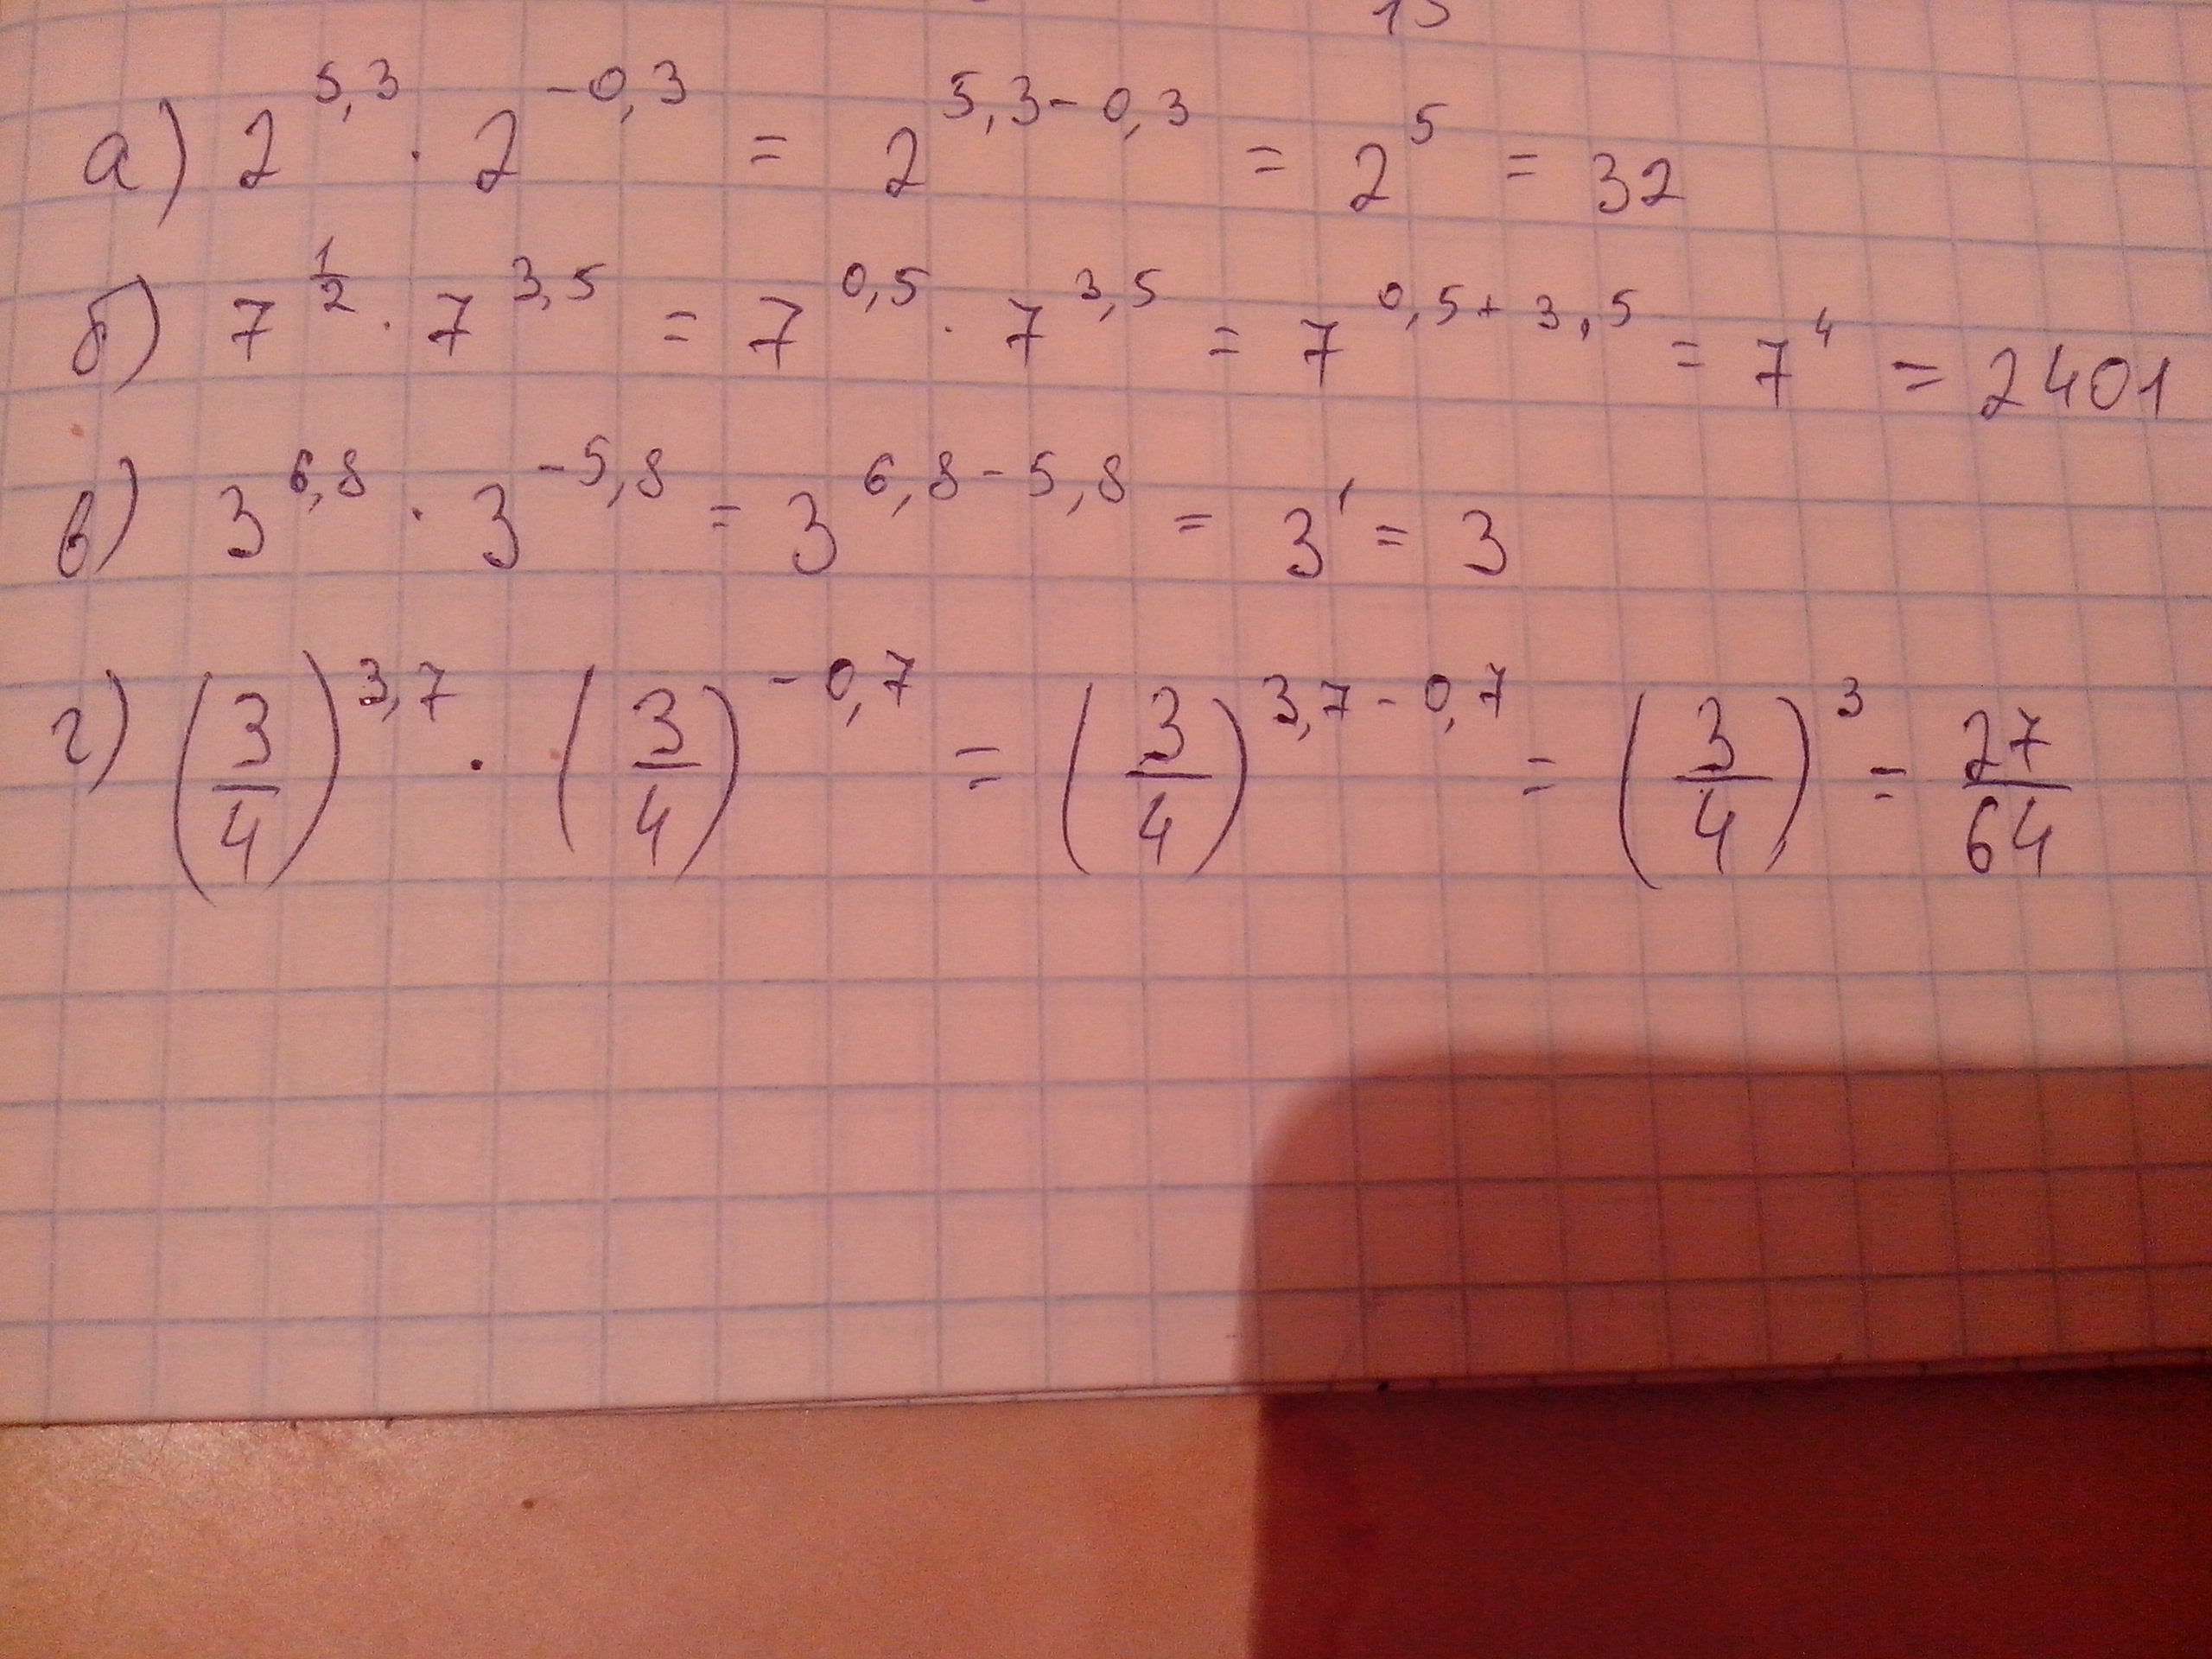 а) 2^5,3 · 2^-0,3 = 2^5,3-0,3 = 2^5 = 32
б) 7^1/2 · 7^3,5 = 7^0,5 · 7^3,5 = 7^0,5+3,5 = 7^4 = 2401
в) 3^6,8 · 3^-5,8 = 3^6,8-5,8 = 3^1 = 3
г) (3/4)^3,7 · (3/4)^-0,7 = (3/4)^3,7-0,7 = (3/4)^3 = 27/64